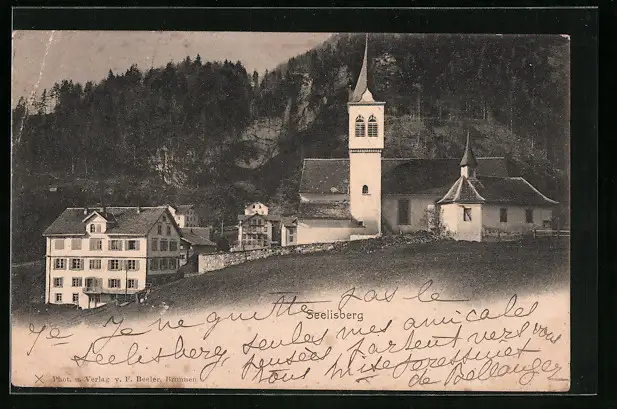 Seelisberg
Je ne quitte pas le
Seelisberg, seules mes amicales
pensées partent vers vous
tous
de Bellanger
Phot. u. Verlag v. F. Beeler, Brunnen